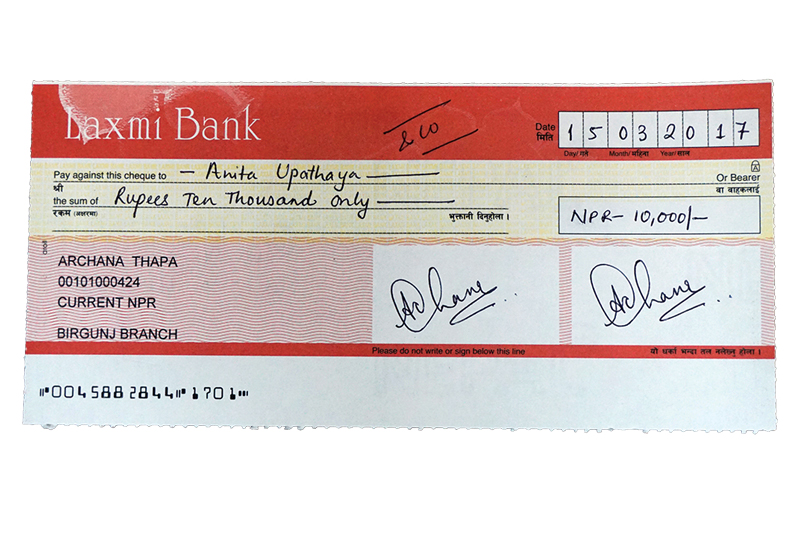 Laxmi Bank
& co
Date 15032017
मिति
Day/गते Month/महिना Year/साल
Pay against this cheque to — Anita Upathaya — Or Bearer
श्री वा वाहकलाई
the sum of Rupees Ten Thousand Only —
रकम (अक्षरमा) भुक्तानी दिनुहोला । NPR- 10,000/-
ARCHANA THAPA
00101000424
CURRENT NPR
BIRGUNJ BRANCH
Please do not write or sign below this line यो धर्का भन्दा तल नलेख्नु होला ।
⑈004588 2844⑈ 1701⑈